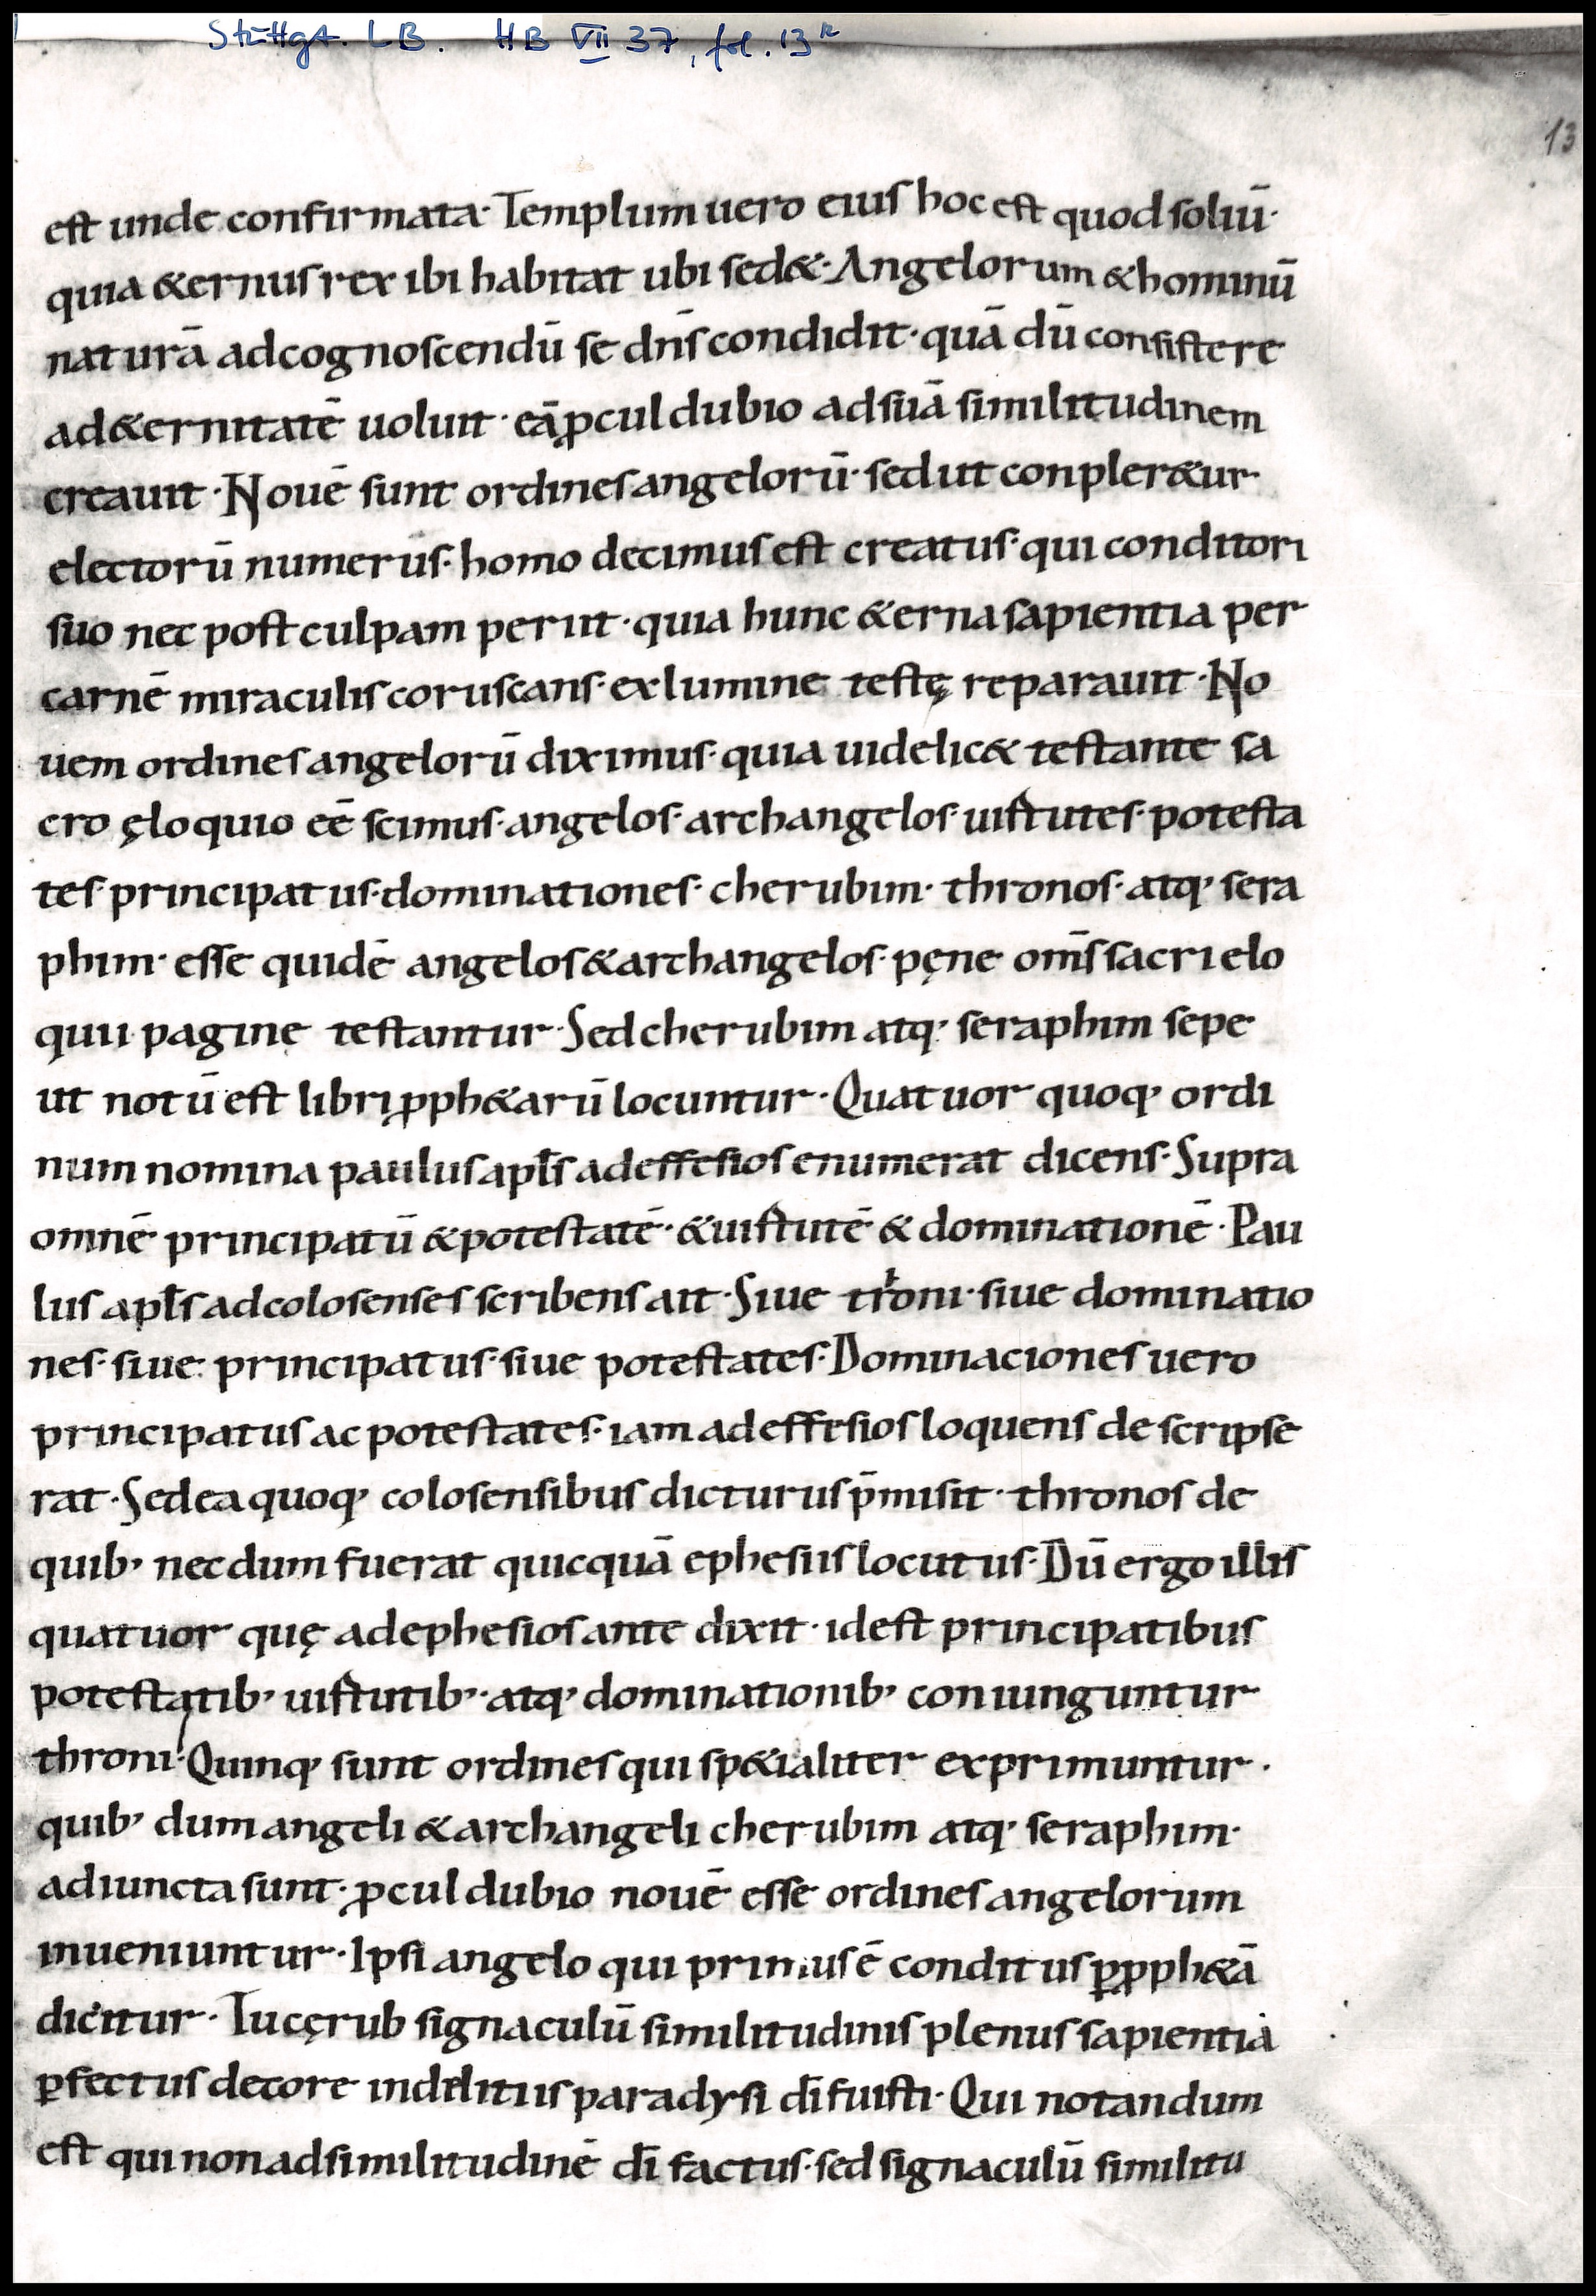 Stuttgt. LB. HB VII 37, fol. 13r
13
est unde confirmata· Templum uero eius hoc est quod soliū·
quia &ernus rex ibi habitat ubi sed&· Angelorum & hominū
naturā ad cognoscendū se dn̄s condidit· quā dū consistere
ad &ernitatē uoluit· eā ꝓcul dubio ad suā similitudinem
creauit· Nouē sunt ordines angelorū· sed ut conpler&ur·
electorū numerus· homo decimus est creatus· qui conditori
suo nec post culpam periit· quia hunc &erna sapientia per
carnē miraculis coruscans· ex lumine testę reparauit· No
uem ordines angelorū diximus· quia uidelic& testante sa
cro ęloquio eē scimus· angelos· archangelos· uirtutes· potesta
tes· principatus· dominationes· cherubim· thronos· atq; sera
phim· esse quidē angelos & archangelos· pęne om̄s sacri elo
quii paginę testantur· Sed cherubim atq; seraphim sepe
ut notū est libri ꝓph&arū locuntur· Quatuor quoq; ordi
num nomina paulus apl̄s ad effesios enumerat dicens· Supra
omnē principatū & potestatē· & uirtutē & dominationē· Pau
lus apl̄s ad colosenses scribens ait· Siue troni· siue dominatio
nes· siue principatus· siue potestates· Dominaciones uero
principatus ac potestates· iam ad effesios loquens descripse
rat· Sed ea quoq; colosensibus dicturus p̄misit· thronos de
quib; necdum fuerat quicquā ephesiis locutus· Dū ergo illis
quatuor quę ad ephesios ante dixit· id est principatibus
potestatib; uirtutib;· atq; dominationib; coniunguntur
throni· Quinq; sunt ordines qui sp&ialiter exprimuntur·
quib; dum angeli & archangeli cherubim atq; seraphim·
adiuncta sunt· ꝓcul dubio nouē esse ordines angelorum
inueniuntur· Ipsi angelo qui primus ē conditus ꝑ ꝓph&ā
dicitur· Tu cęrub signaculū similitudinis plenus sapientia
ꝑfectus decore in delitiis paradysi dī fuisti· Qui notandum
est qui non ad similitudinē dī factus· sed signaculū similitu